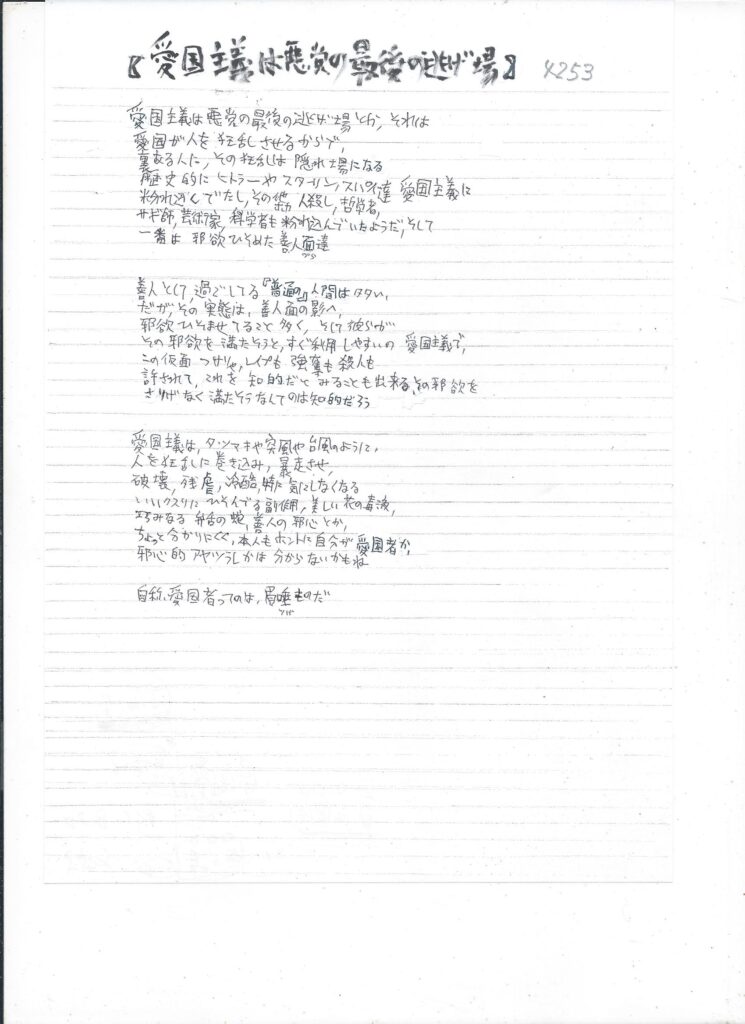 〖愛国主義は悪党の最後の逃げ場〗 4253
愛国主義は悪党の最後の逃げ場とか、それは
愛国が人を狂乱させるからで、
裏ある人に、その狂乱は隠れ場になる
歴史的にヒトラーやスターリン、スパイ達 愛国主義に
紛れ込んでたし、その他 人殺し、哲学者、
サギ師、芸術家、科学者も紛れ込んでいたようだ、そして
一番は 邪欲ひそめた善人面達
ヅラ
善人として、過ごしてる『普通の』人間はタタい、
だが、その実態は、善人面の影へ、
邪欲ひそませてること多く、そして彼らが
その邪欲を満たそうと、すぐ利用しやすいの 愛国主義で、
この仮面 つけりゃ、レイプも 強奪も 殺人も
許されて、これを 知的だと みることも出来る、その邪欲を
さりげなく満たそうなんてのは知的だろう
愛国主義は、タツマキや突風や台風のように、
人を狂乱に巻き込み、暴走させ、
破壊、残虐、冷酷、特に気にしなくなる
いいクスリにひそんでる副作用、美しい花の毒液、
巧みなる 弁舌の蛇、善人の邪心とか、
ちょっと分かりにくく、本人もホントに自分が愛国者か、
邪心的アヤツラレかは 分からないかもね
自称、愛国者ってのは、眉唾ものだ
ツバ